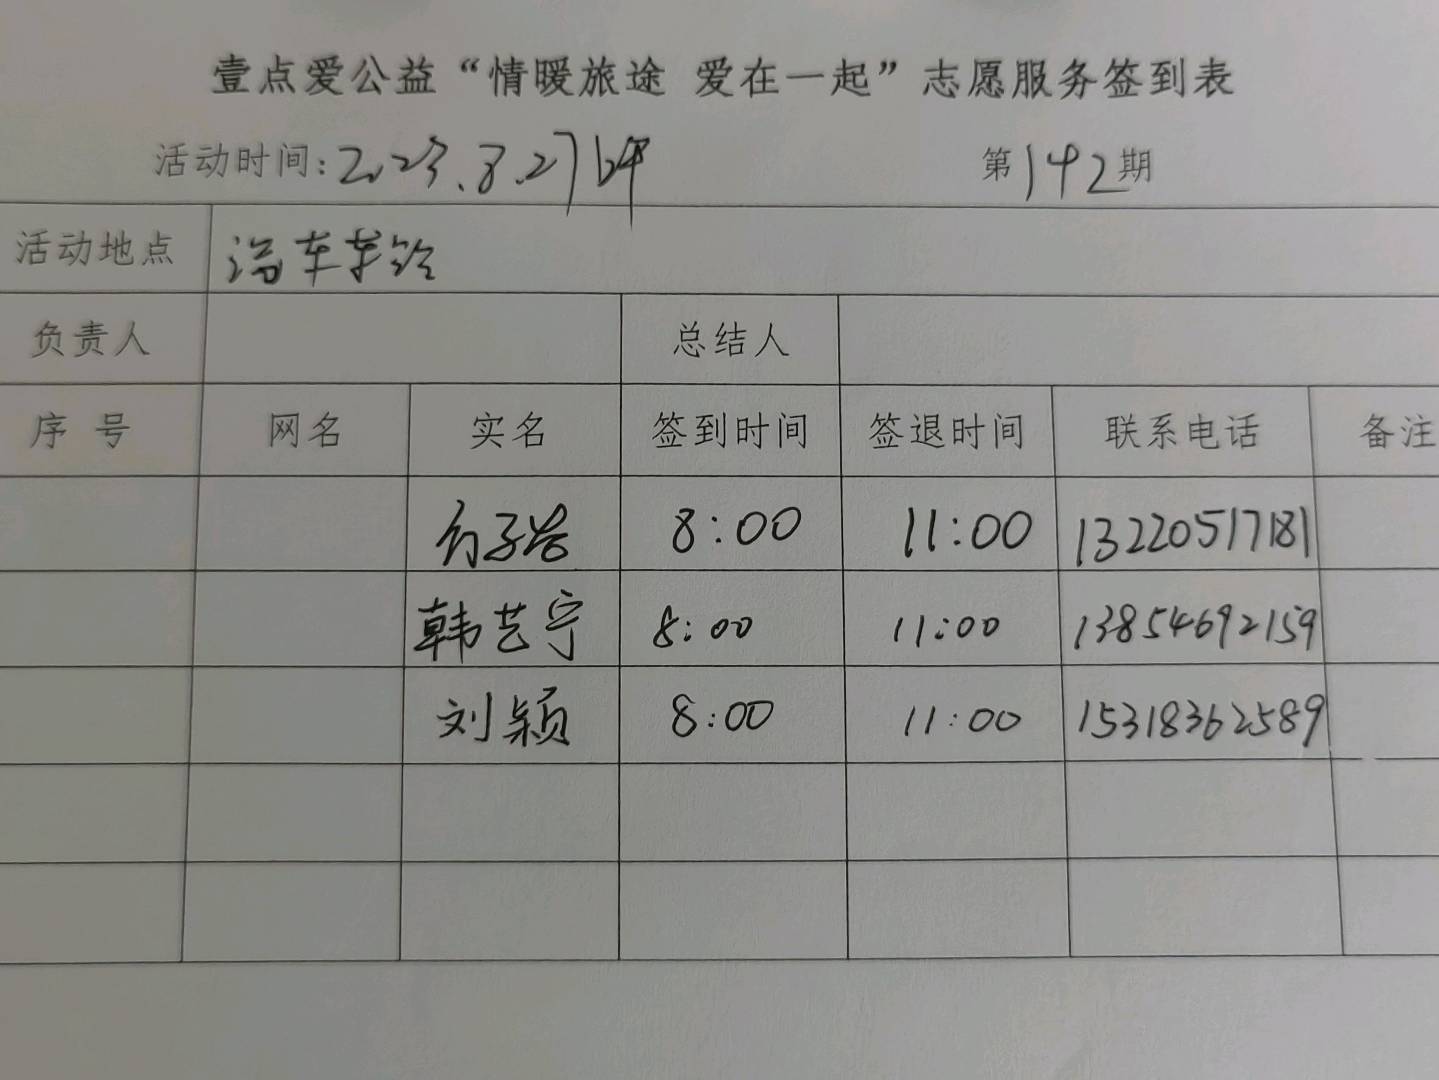 壹点爱公益“情暖旅途 爱在一起”志愿服务签到表
活动时间:2023.8.27 第142期
活动地点 汽车车
负责人 总结人
序号 网名 实名 签到时间 签退时间 联系电话 备注
8:00 11:00 13220517181
韩艺宁 8:00 11:00 13854692159
刘颖 8:00 11:00 15318362589